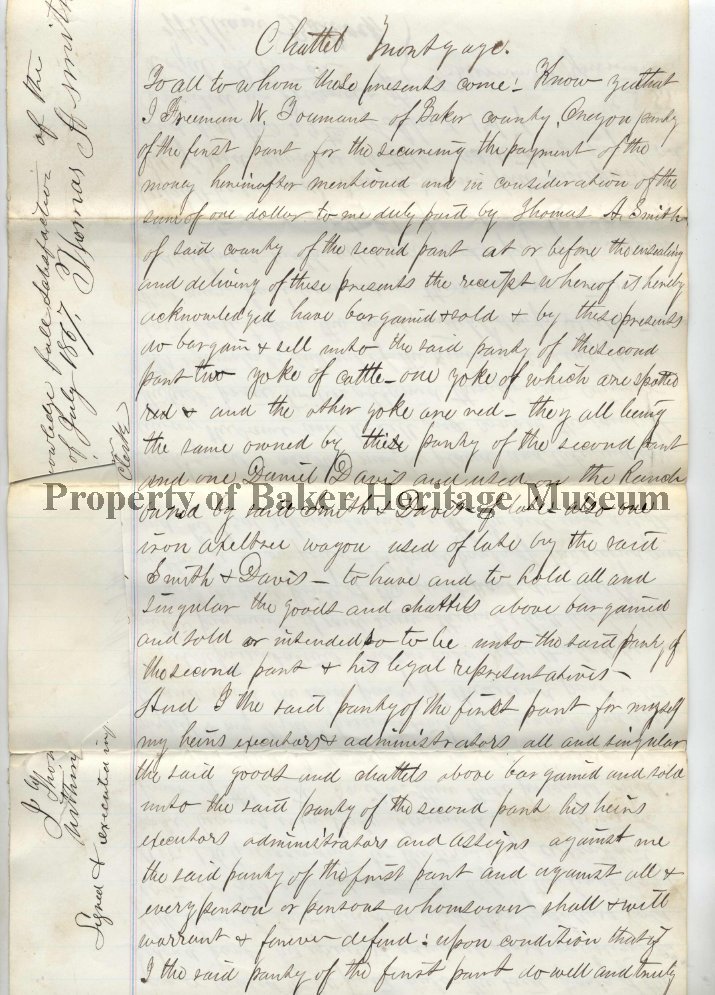 Chattel Mortgage.
To all to whom these presents come - Know ye that
I Freeman W. Youmans of Baker county, Oregon party
of the first part for the secureing the payment of the
money hereinafter mentioned and in consideration of the
sum of one dollar to me duly paid by Thomas A. Smith
of said county of the second part at or before the ensealing
and delivery of these presents the receipt whereof is hereby
acknowledged have bargained & sold & by these presents
do bargain & sell unto the said party of the second
part two yoke of cattle - one yoke of which are spotted
red & and the other yoke are red - they all being
the same owned by the party of the second part
and one Daniel Davis and used on the Ranch
owned by said Smith & Davis of late - also one
iron axeltree wagon used of late by the said
Smith & Davis - to have and to hold all and
singular the goods and chattels above bargained
and sold or intended so to be unto the said party of
the second part & his legal representatives -
And I the said party of the first part for myself
my heirs executors & administrators all and singular
the said goods and chattels above bargained and sold
unto the said party of the second part his heirs
executors administrators and assigns against me
the said party of the first part and against all &
every person or persons whomsoever shall & will
warrant & forever defend: upon condition that if
I the said party of the first part do well and truly
Property of Baker Heritage Museum
nowledge full satisfaction of the
of July 1867. Thomas A Smith
Clerk
I Thom
within
Signed & executed in